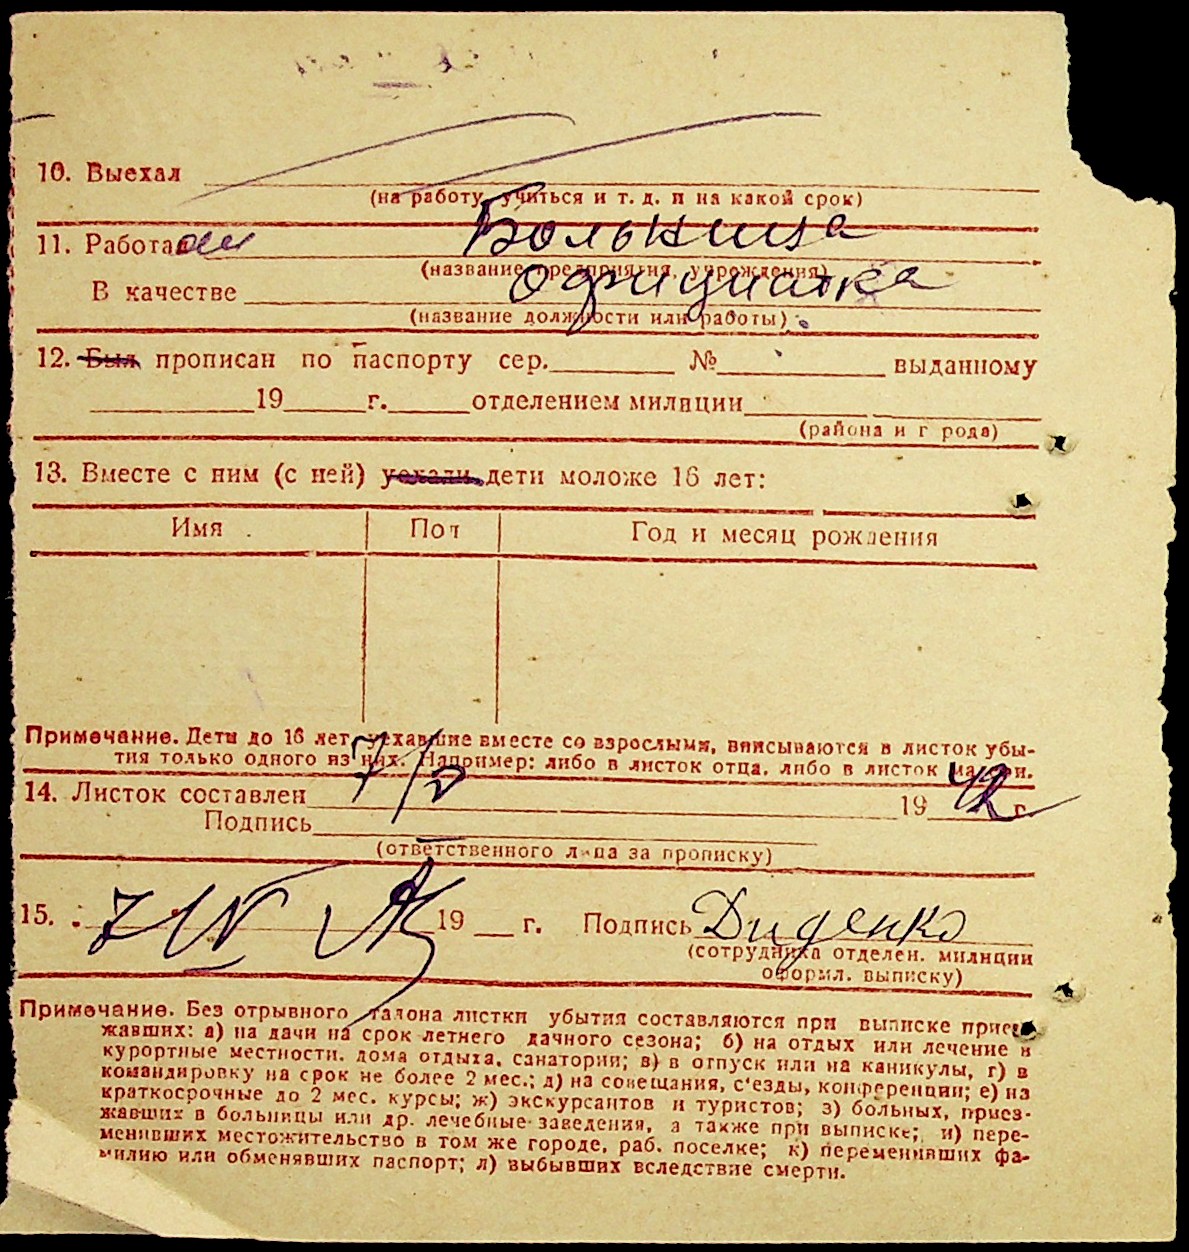 10. Выехал
(на работу, учиться и т. д. и на какой срок)
11. Работал Больница
(название предприятия, учреждения)
В качестве Официатка
(название должности или работы)
12. Был прописан по паспорту сер. № выданному
19 г. отделением милиции
(района и г рода)
13. Вместе с ним (с ней) уехали дети моложе 16 лет:
Имя Пол Год и месяц рождения
Примечание. Дети до 16 лет, уехавшие вместе со взрослыми, вписываются в листок убы-
тия только одного из них. Например: либо в листок отца, либо в листок матери.
14. Листок составлен 7/V 1942 г.
Подпись
(ответственного лица за прописку)
15. 7 IV 19 г. Подпись Диденко
(сотрудника отделен. милиции
оформл. выписку)
Примечание. Без отрывного талона листки убытия составляются при выписке приез-
жавших: а) на дачи на срок летнего дачного сезона; б) на отдых или лечение в
курортные местности, дома отдыха, санатории; в) в отпуск или на каникулы, г) в
командировку на срок не более 2 мес.; д) на совещания, с'езды, конференции; е) на
краткосрочные до 2 мес. курсы; ж) экскурсантов и туристов; з) больных, приез-
жавших в больницы или др. лечебные заведения, а также при выписке; и) пере-
менивших местожительство в том же городе, раб. поселке; к) переменивших фа-
милию или обменявших паспорт; л) выбывших вследствие смерти.